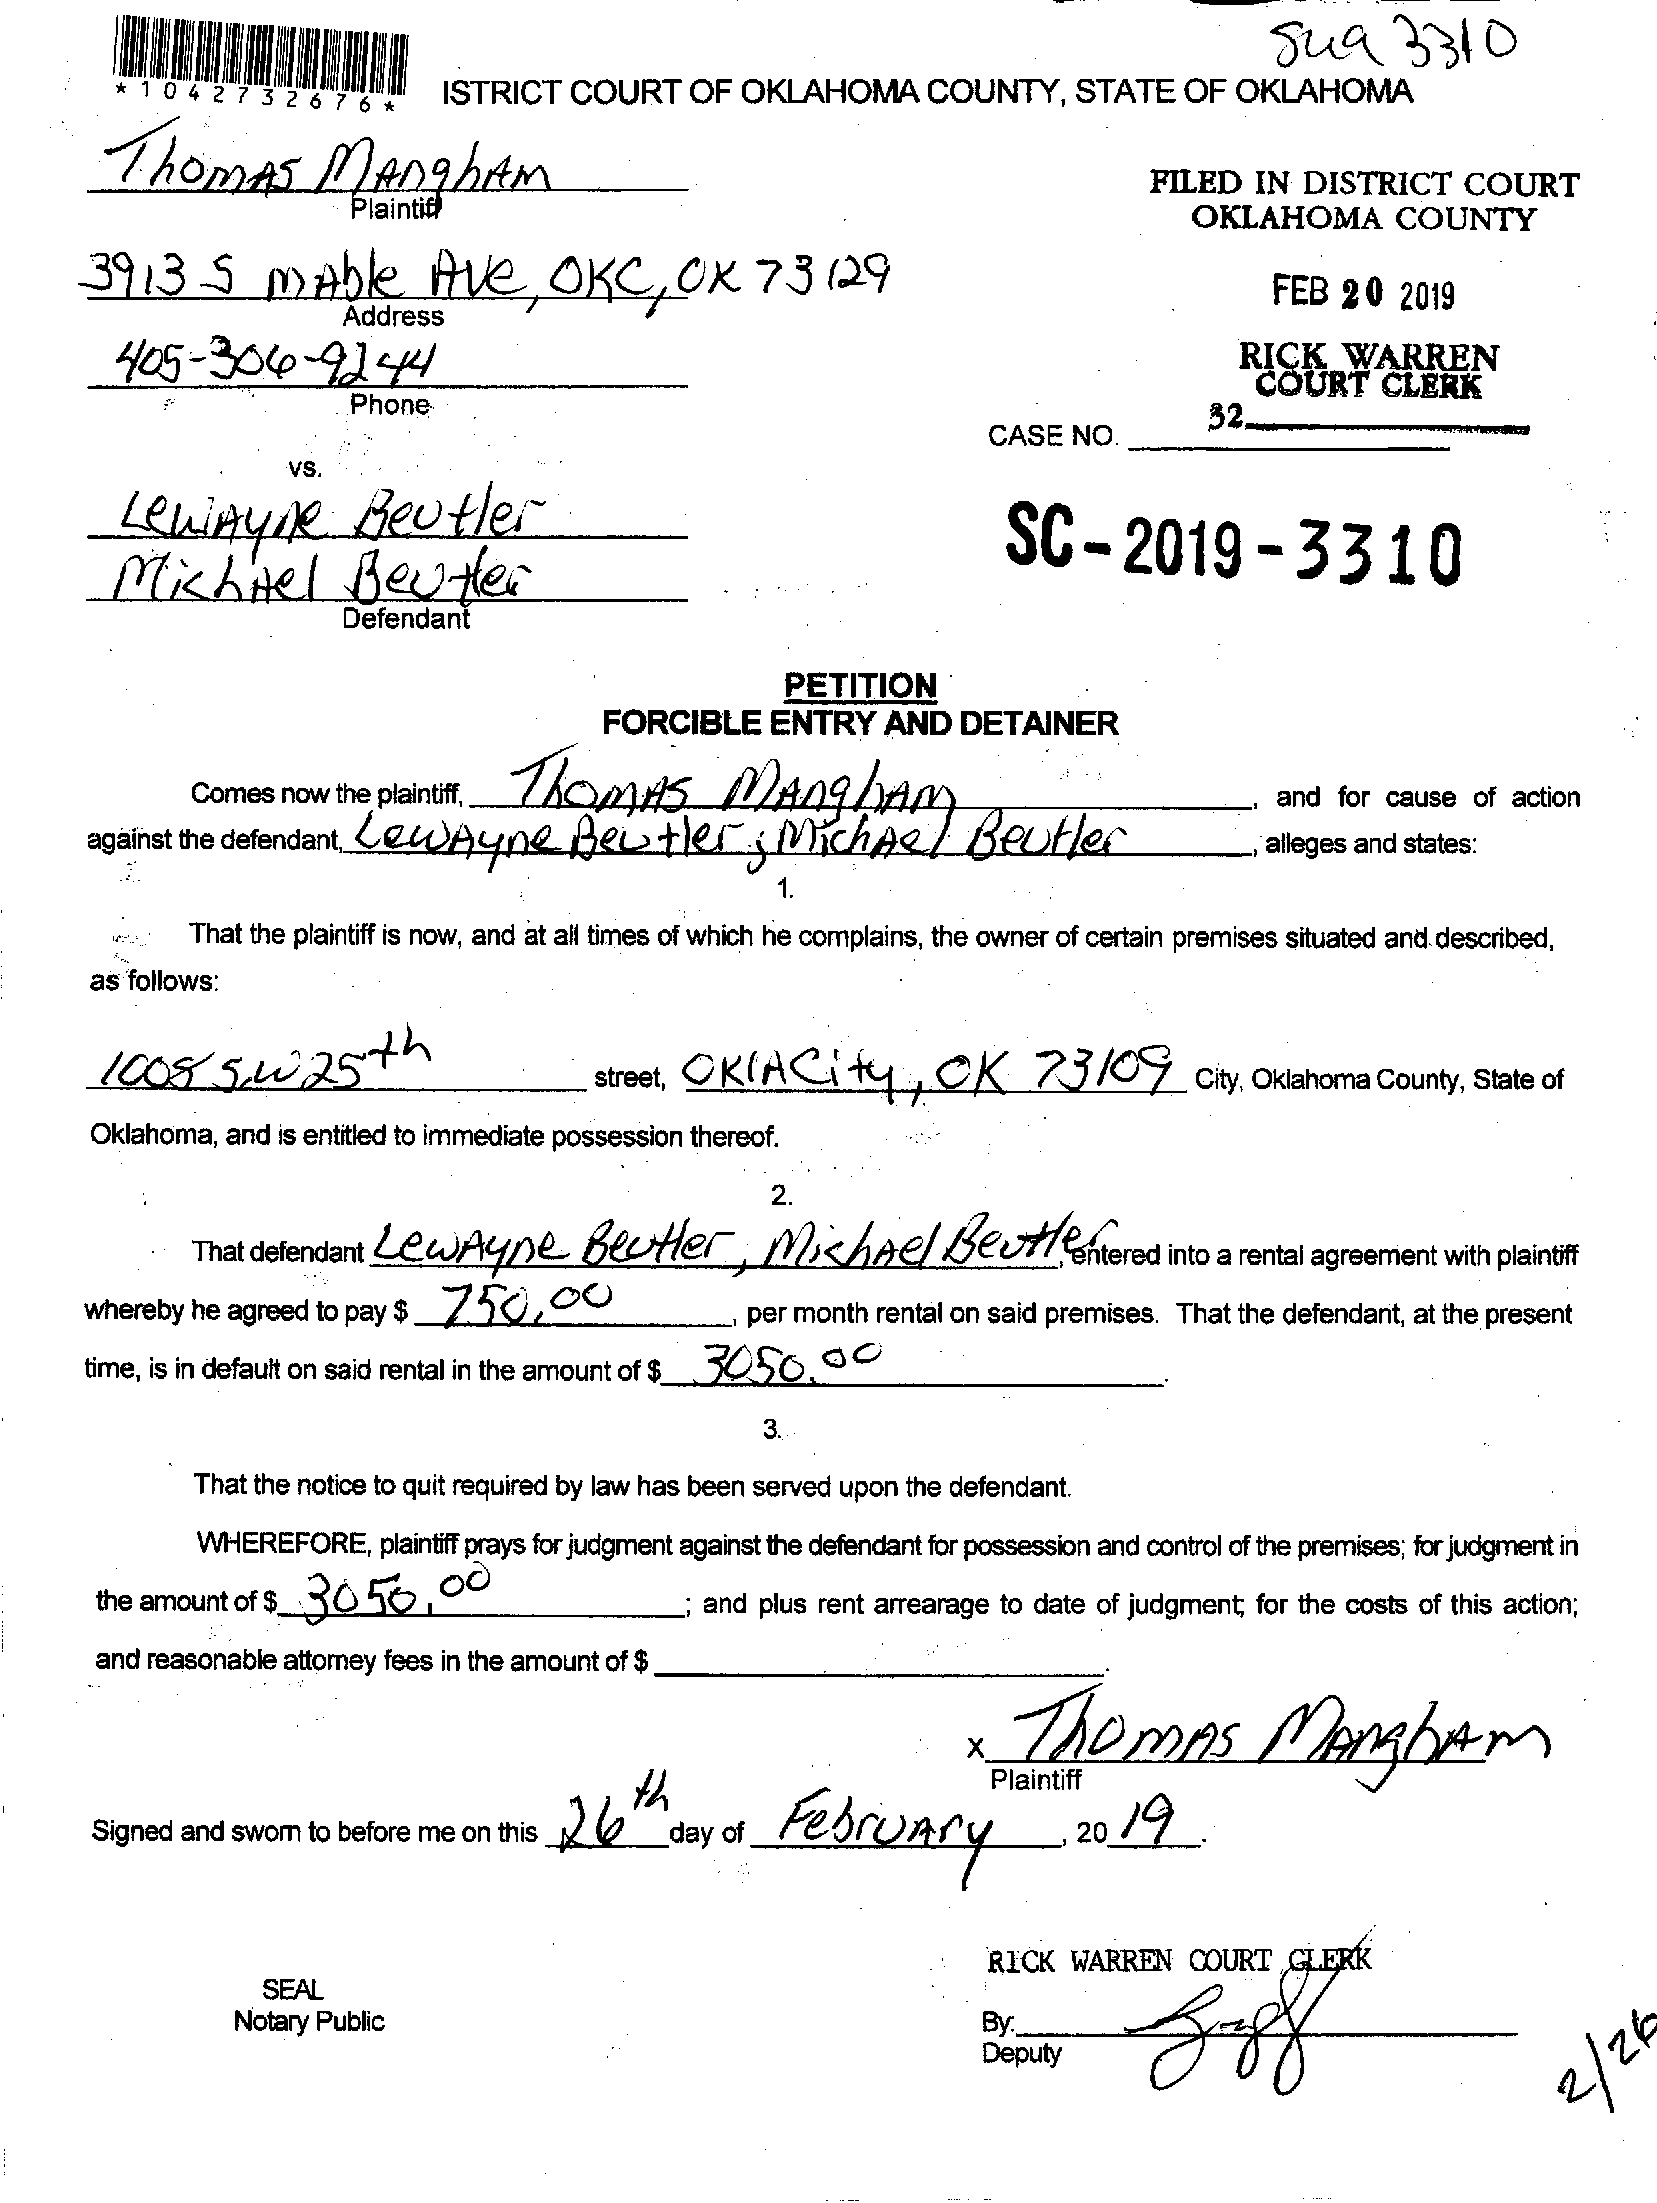 sua 3310
*1042732676*
ISTRICT COURT OF OKLAHOMA COUNTY, STATE OF OKLAHOMA
Thomas Mangham
Plaintiff
FILED IN DISTRICT COURT
OKLAHOMA COUNTY
3913 S Mable Ave, OKC, OK 73129
Address
FEB 20 2019
405-306-9244
Phone
RICK WARREN
COURT CLERK
32
CASE NO.
vs.
Lewayne Beutler
Michael Beutler
Defendant
SC-2019-3310
PETITION
FORCIBLE ENTRY AND DETAINER
Comes now the plaintiff, Thomas Mangham, and for cause of action
against the defendant, Lewayne Beutler; Michael Beutler, alleges and states:
1.
That the plaintiff is now, and at all times of which he complains, the owner of certain premises situated and described,
as follows:
1008 S.W 25th street, OklaCity, OK 73109 City, Oklahoma County, State of
Oklahoma, and is entitled to immediate possession thereof.
2.
That defendant Lewayne Beutler, Michael Beutler, entered into a rental agreement with plaintiff
whereby he agreed to pay $ 750.00, per month rental on said premises. That the defendant, at the present
time, is in default on said rental in the amount of $ 3050.00.
3.
That the notice to quit required by law has been served upon the defendant.
WHEREFORE, plaintiff prays for judgment against the defendant for possession and control of the premises; for judgment in
the amount of $ 3050.00; and plus rent arrearage to date of judgment; for the costs of this action;
and reasonable attorney fees in the amount of $.
x Thomas Mangham
Plaintiff
Signed and sworn to before me on this 26th day of February, 2019.
RICK WARREN COURT CLERK
SEAL
Notary Public
By:
Deputy
2/26